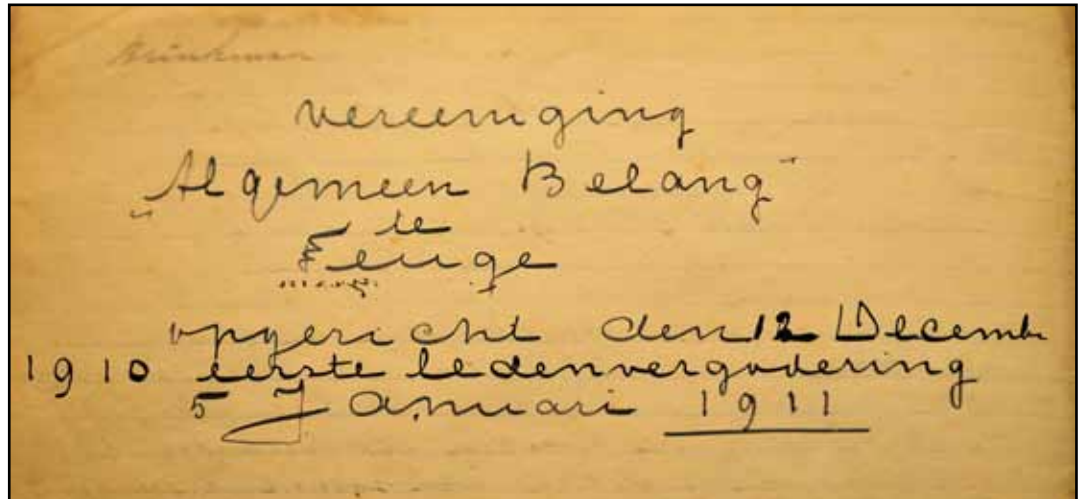 Brinkman
vereeniging
„Algemeen Belang"
te
Teuge
opgericht den 12 Decembr
1910 eerste ledenvergadering
5 Januari 1911